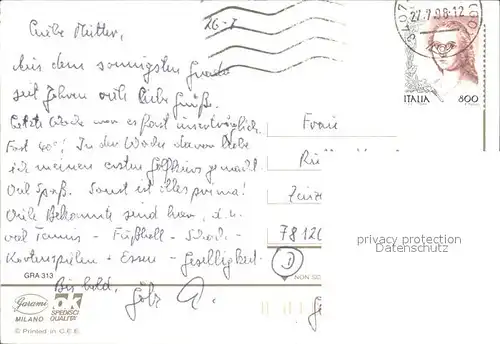 Liebe Mutter,
26-7
27.7.98-12
Aus dem sonnigsten Grado
seit Jahren viele liebe Grüße.
Letzte Woche war es fast unerträglich.
Fast 40°! In der Woche davor habe
ich meinen ersten Golfkurs gemacht.
Viel Spaß. Sonst ist alles prima!
Viele Bekannte sind hier, d.h.
viel Tennis - Fußball - Schach -
Kartenspielen - Essen - Geselligkeit.
Bis bald,
Götz
ITALIA 800
Frau
78120
D
privacy protection
Datenschutz
GRA 313
NON SC
Garami
MILANO
SPEDISCI
QUALITA'
© Printed in C.E.E.